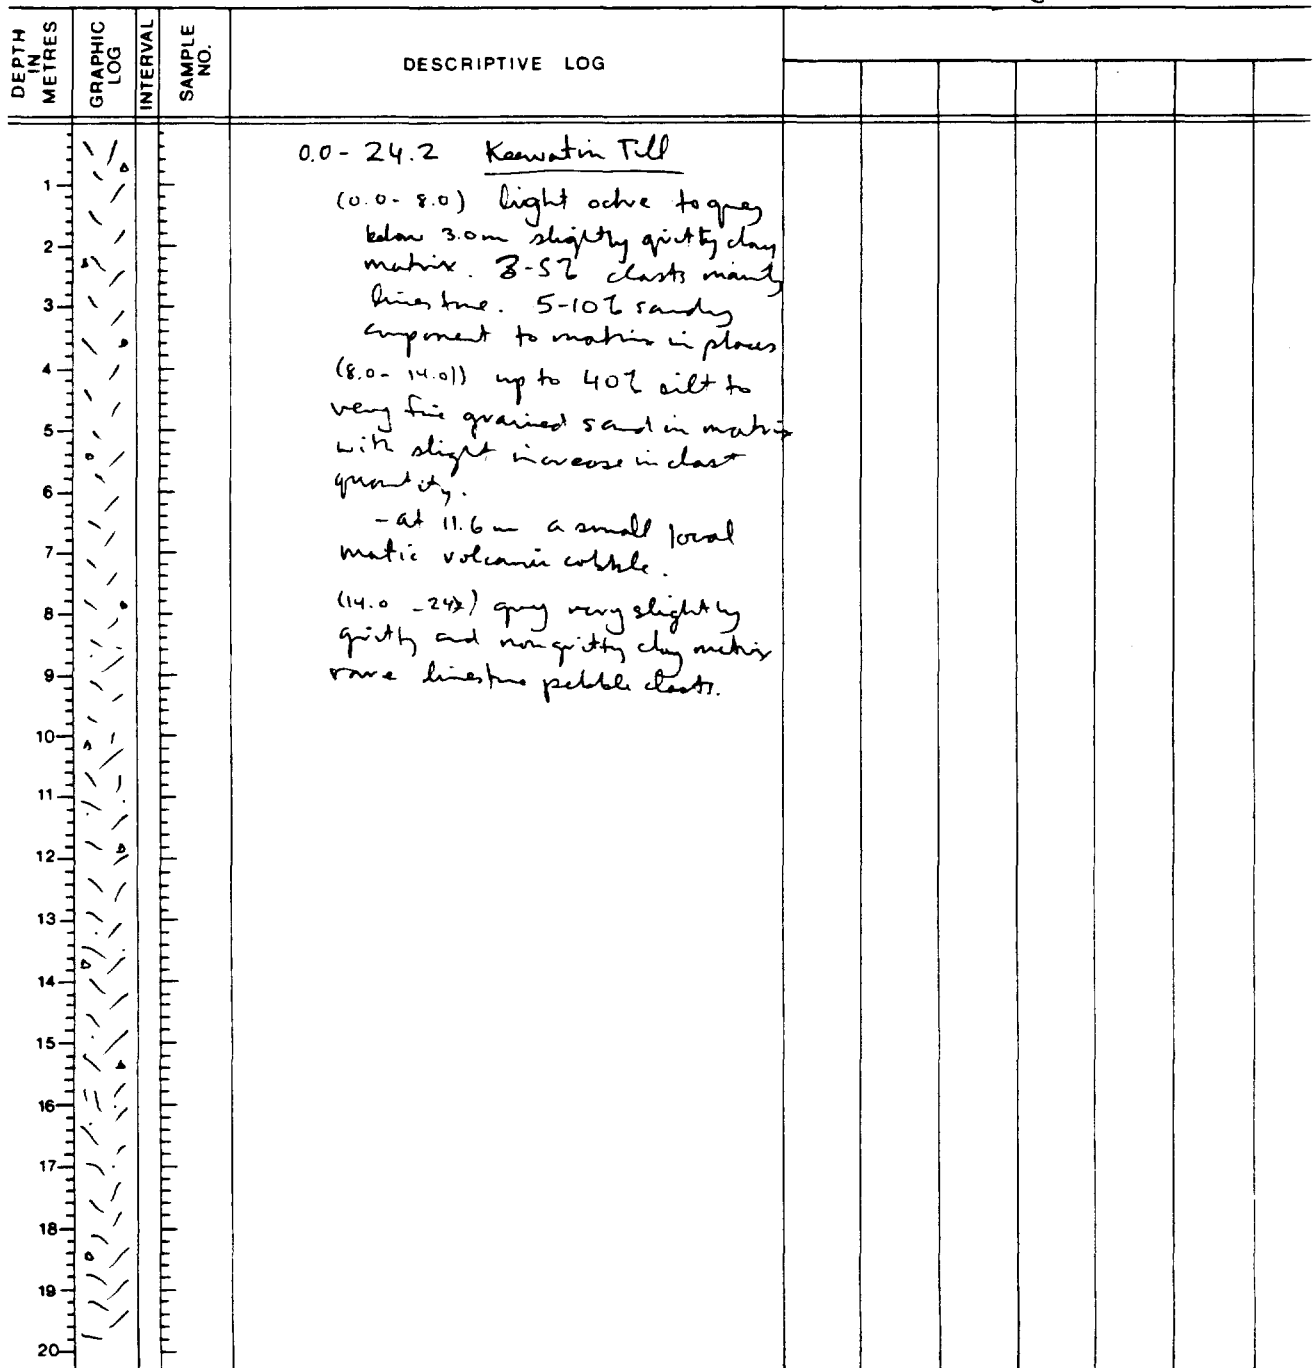 DEPTH IN METRES
GRAPHIC LOG
INTERVAL
SAMPLE NO.
DESCRIPTIVE LOG
0.0 - 24.2 Keewatin Till
(0.0 - 8.0) light ochre to grey
below 3.0m slightly gritty clay
matrix. 3-5% clasts mainly
limestone. 5-10% sandy
component to matrix in places
(8.0 - 14.0)) up to 40% silt to
very fine grained sand in matrix
with slight increase in clast
quantity.
- at 11.6 m a small local
mafic volcanic cobble.
(14.0 - 24.2) grey very slightly
gritty and non gritty clay matrix
rare limestone pebble clasts.
1
2
3
4
5
6
7
8
9
10
11
12
13
14
15
16
17
18
19
20